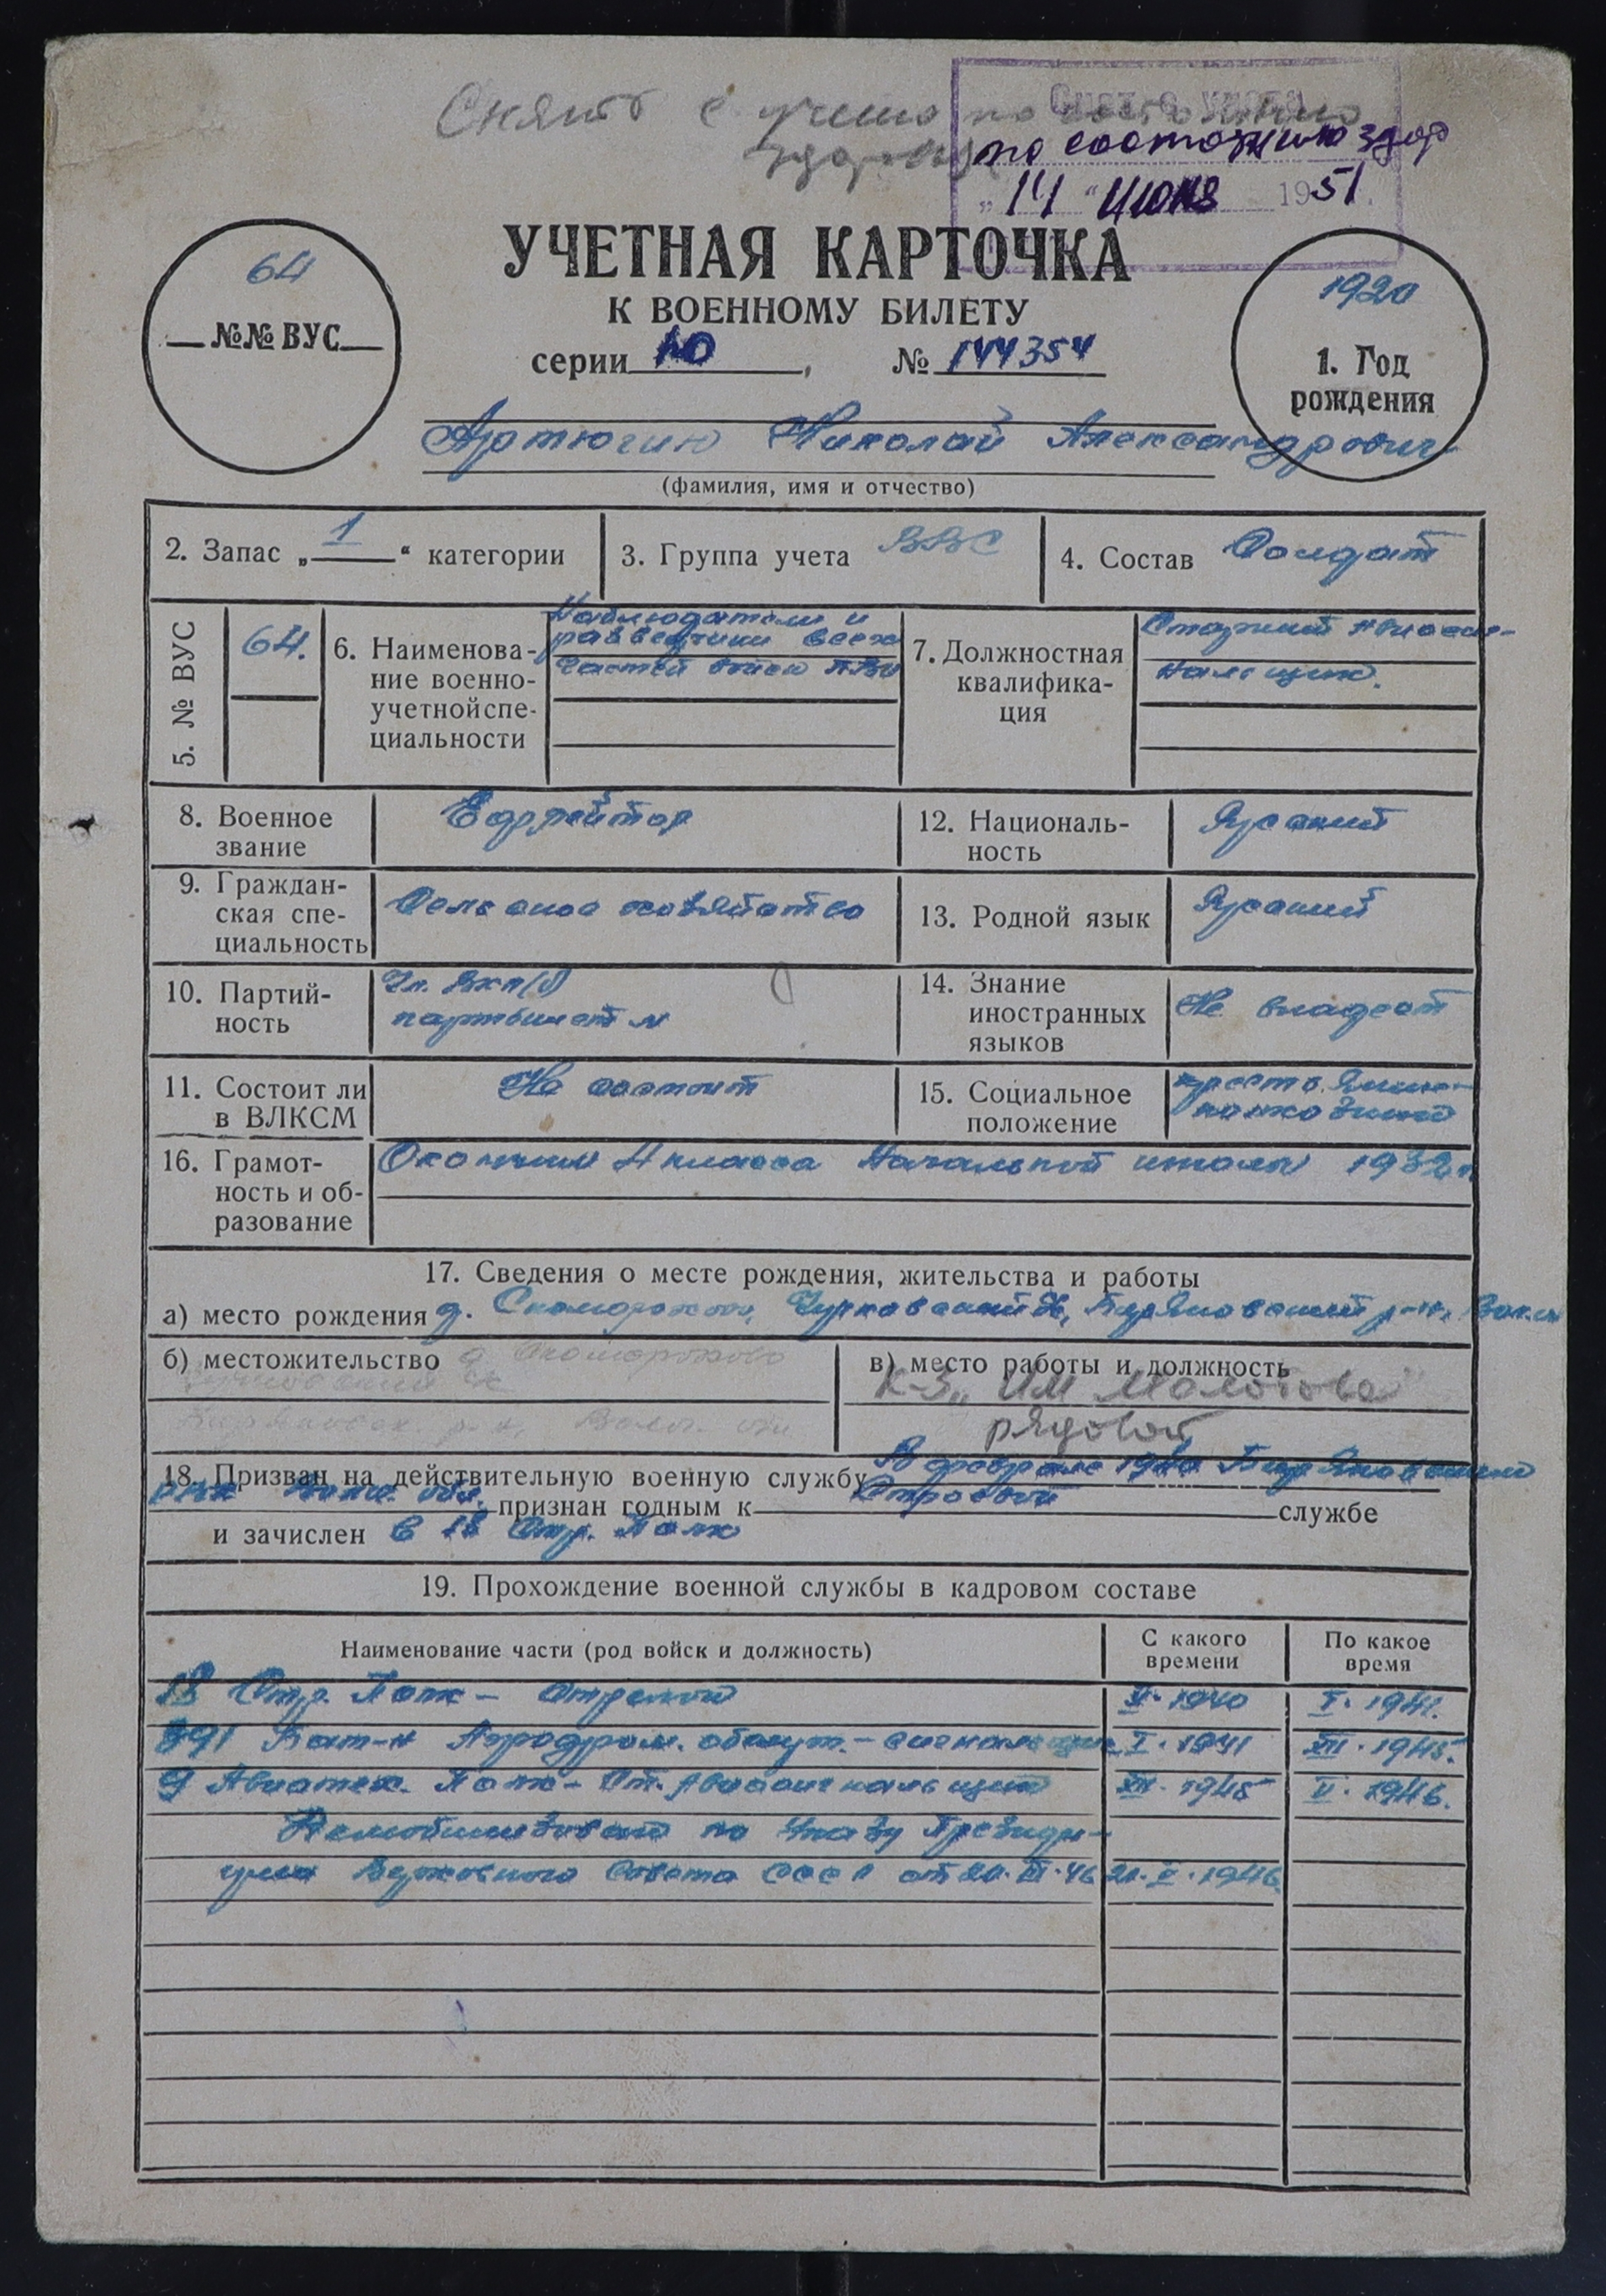 Снят с учета по состоянию
здоровья
Снят с учета
по состоянию здор
„14“ июня 1951.
УЧЕТНАЯ КАРТОЧКА
К ВОЕННОМУ БИЛЕТУ
серии НО, № 144354
64
№№ ВУС
1920
1. Год
рождения
Артюгин Николай Александрович
(фамилия, имя и отчество)
2. Запас „1“ категории
3. Группа учета ВВС
4. Состав Солдат
5. № ВУС
64.
6. Наименова-
ние военно-
учетной спе-
циальности
Наблюдатели и
разведчики всех
частей войск ПВО
7. Должностная
квалифика-
ция
Старший авиасиг-
нальщик.
8. Военное
звание
Ефрейтор
12. Националь-
ность
Русский
9. Граждан-
ская спе-
циальность
Сельское хозяйство
13. Родной язык
Русский
10. Партий-
ность
Чл. ВКП(б)
партбилет №
14. Знание
иностранных
языков
Не владеет
11. Состоит ли
в ВЛКСМ
Не состоит
15. Социальное
положение
16. Грамот-
ность и об-
разование
Окончил 4 класса Начальной школы 1932г.
17. Сведения о месте рождения, жительства и работы
а) место рождения д. Скоморохово, Чурковский с, р-н,
б) местожительство д Скоморохово
Чурковский с
р-н, Волог. обл
в) место работы и должность
К-З „Им Молотова“
рядовой
18. Призван на действительную военную службу В феврале 1940
РВК Волог. обл. признан годным к Строевой службе
и зачислен в 18 Стр. Полк
19. Прохождение военной службы в кадровом составе
Наименование части (род войск и должность)
С какого
времени
По какое
время
18 Стр. Полк – Стрелок II. 1940 I. 1941.
391 Бат-н Аэродром. обслуж. – сигнальщик I. 1941 XII. 1945.
9 Авиатех. Полк – Ст. Авиасигнальщик XII. 1945 V. 1946.
Демобилизован по Указу Президи-
ума Верховного Совета СССР от 20.III.46 21.V.1946.